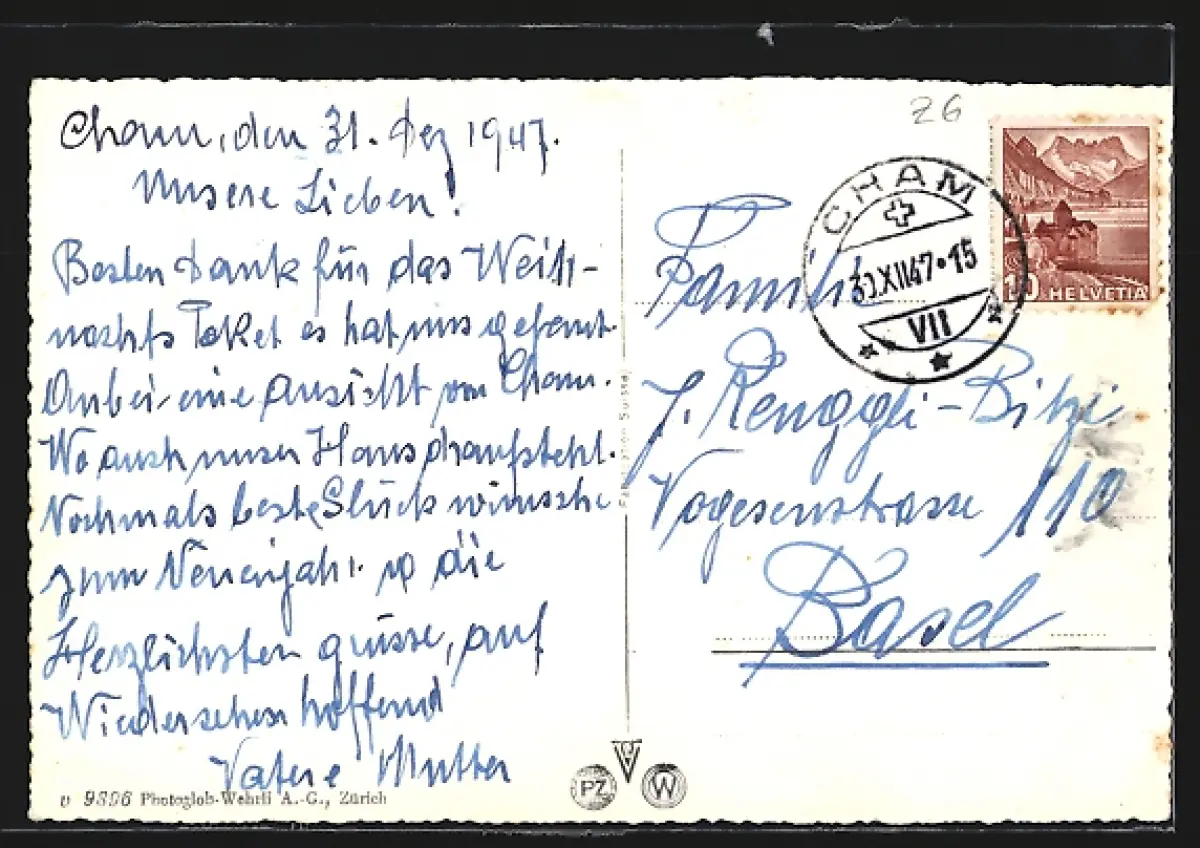 Cham, den 31. Dez 1947.
Unsere Lieben!
Besten Dank für das Weih-
nachts Paket es hat uns gefreut.
Anbei eine Ansicht von Cham.
Wo auch unser Haus draufsteht.
Nochmals beste Glückwünsche
zum Neuenjahr. die
Herzlichsten grüsse, auf
Wiedersehen hoffend
Vater e Mutter
9896 Photoglob-Wehrli A.-G., Zürich
PZ
W
Z6
CHAM
XII47•15
VII
10 HELVETIA
Familie
J. Renggli-Bitzi
Vogesenstrasse 110
Basel